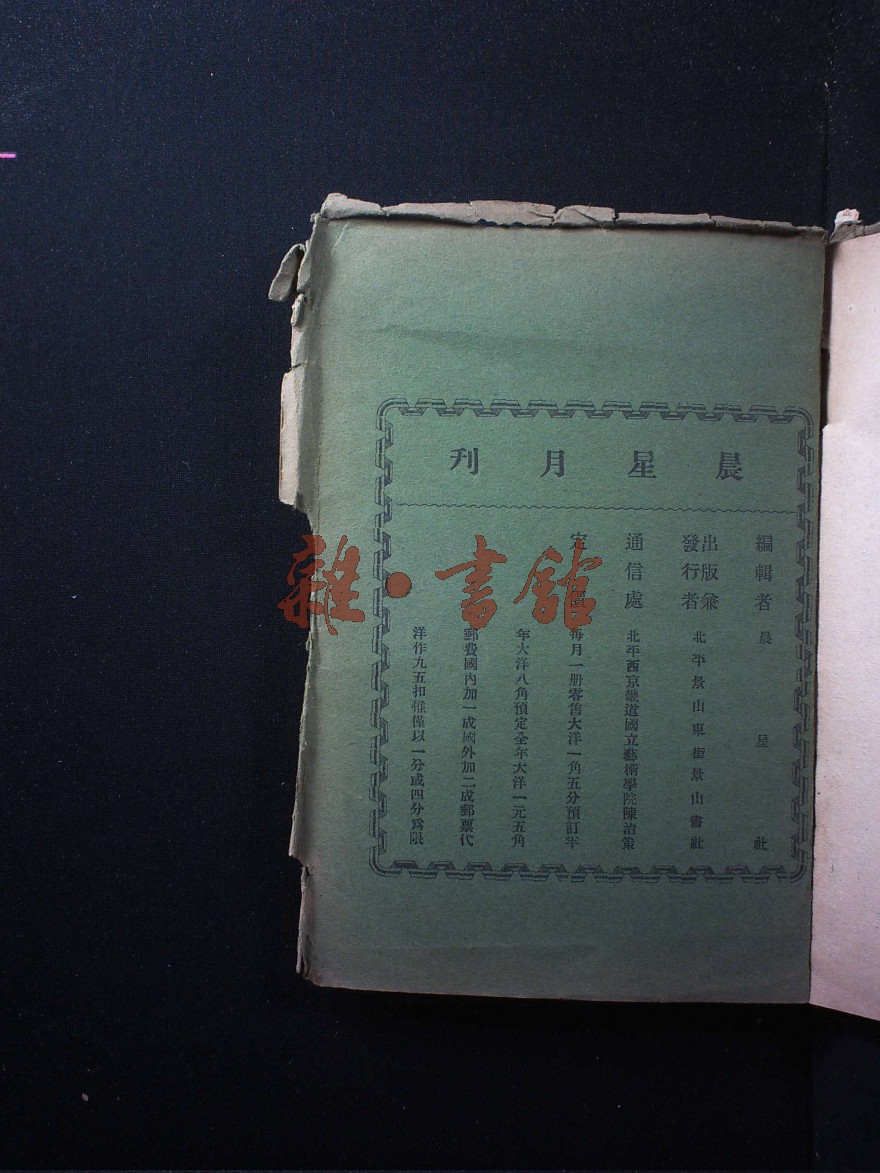 晨星月刊
編輯者 晨星社
出版兼
發行者 北平景山東街景山書社
通信處 北平西京畿道國立藝術學院陳治策
定 每月一册零售大洋一角五分預訂半
年大洋八角預定全年大洋一元五角
郵費國內加一成國外加二成郵票代
洋作九五扣惟僅以一分或四分爲限
雜·書館